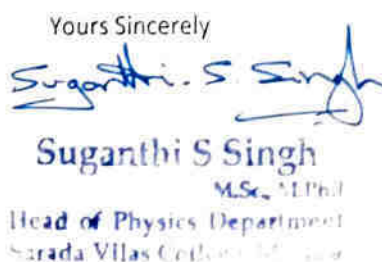 Yours Sincerely
Suganthi. S. Singh
Suganthi S Singh
M.Sc., M.Phil
Head of Physics Department
Sarada Vilas College